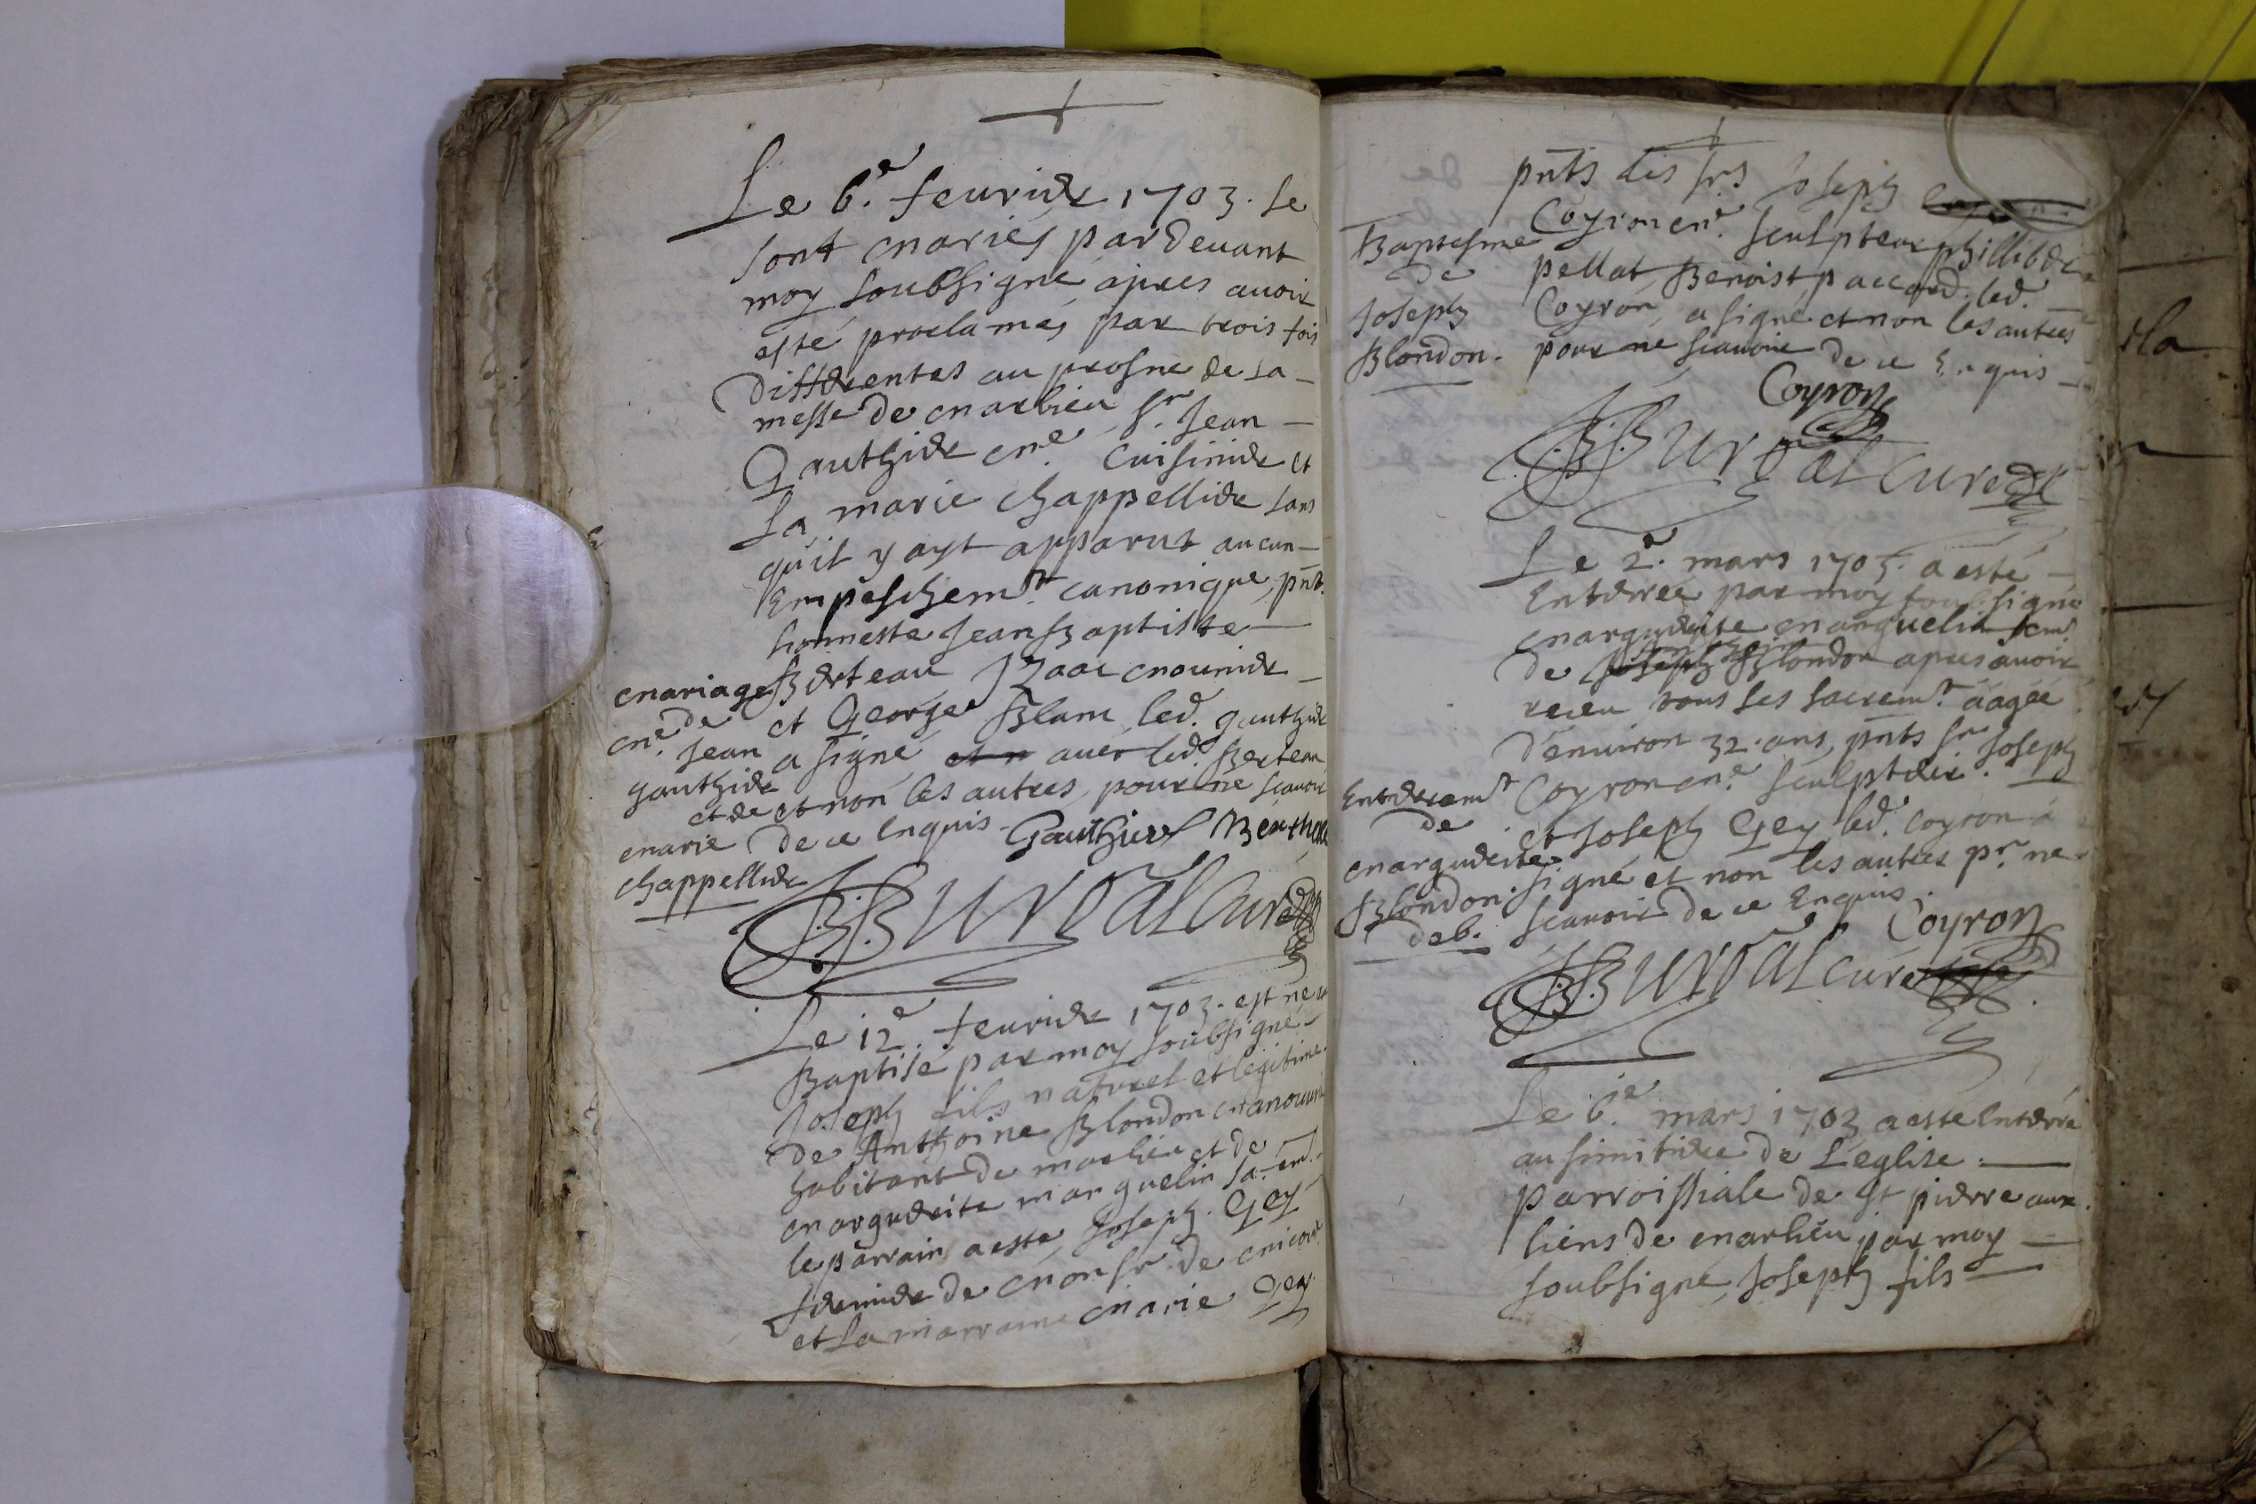 Le 6.e feurier 1703. se
sont mariés par deuant
moy soubsigné apres auoir
esté proclamés par trois fois
differentes au prosne de la
messe de marlieu sr. Jean
Gauthier me. Cuisinier et
la marie chappellier sans
quil y ayt apparut aucun
Empeschemt. canonique, pnt.
honneste Jean Baptiste
Berteau Izaac mounier
et George Blanc led. gauthier
a signé et n auec led. Berteau
et non les autres, pour ne scauoir
de ce Enquis
Gauthier
Mariage
de
me. Jean
gauthier
et de
marie
chappellier
BBurdal Curé
Le 12.e feurier 1703. est né et
Baptisé par moy soubsigné
Joseph fils naturel et legitime
de Anthoine Blondon
habitant de marlieu et de
marguerite manguelin sa
le parrain a esté Joseph. Gey
fermier de monsr. de
et la marraine marie Gey
pnts les srs Joseph
Coyron me. sculpteur
pellat Benoist paccard. led.
Coyron, a signé et non les autres
pour ne scauoir de ce Enquis
Baptesme
de
Joseph
Blondon.
Coyron
BBurdal Curé
Le 2.e mars 1703. a esté
Enterrée par moy soubsigné
marguerite manguelin fem.
de Joseph Blondon apres auoir
receu tous ses sacremt. aâgée
d'enuiron 32. ans, pnts sr. Joseph
Coyron me. sculpteur.
et Joseph Gey led. Coyron a
signé et non les autres pr. ne
scauoir de ce Enquis.
Enterremt
de
marguerite
Blondon.
deb.
Coyron
BBurdal curé
Le 6.e mars 1703 a esté Enterré
au simitiere de L'eglise
parroissiale de st pierre aux
liens de marlieu par moy
soubsigné, Joseph fils